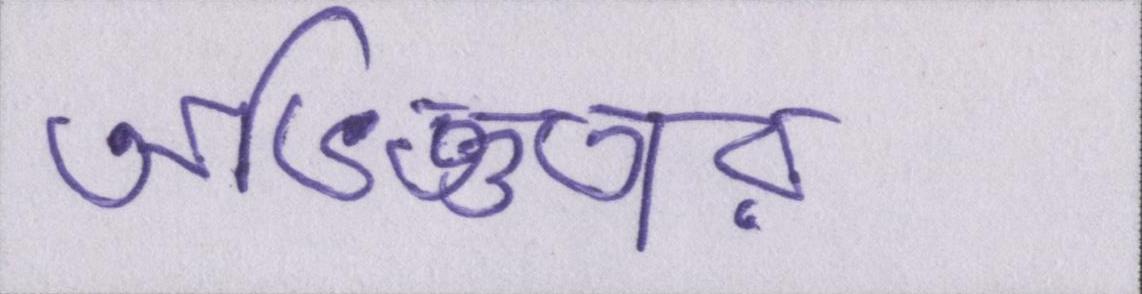 অভিজ্ঞতার